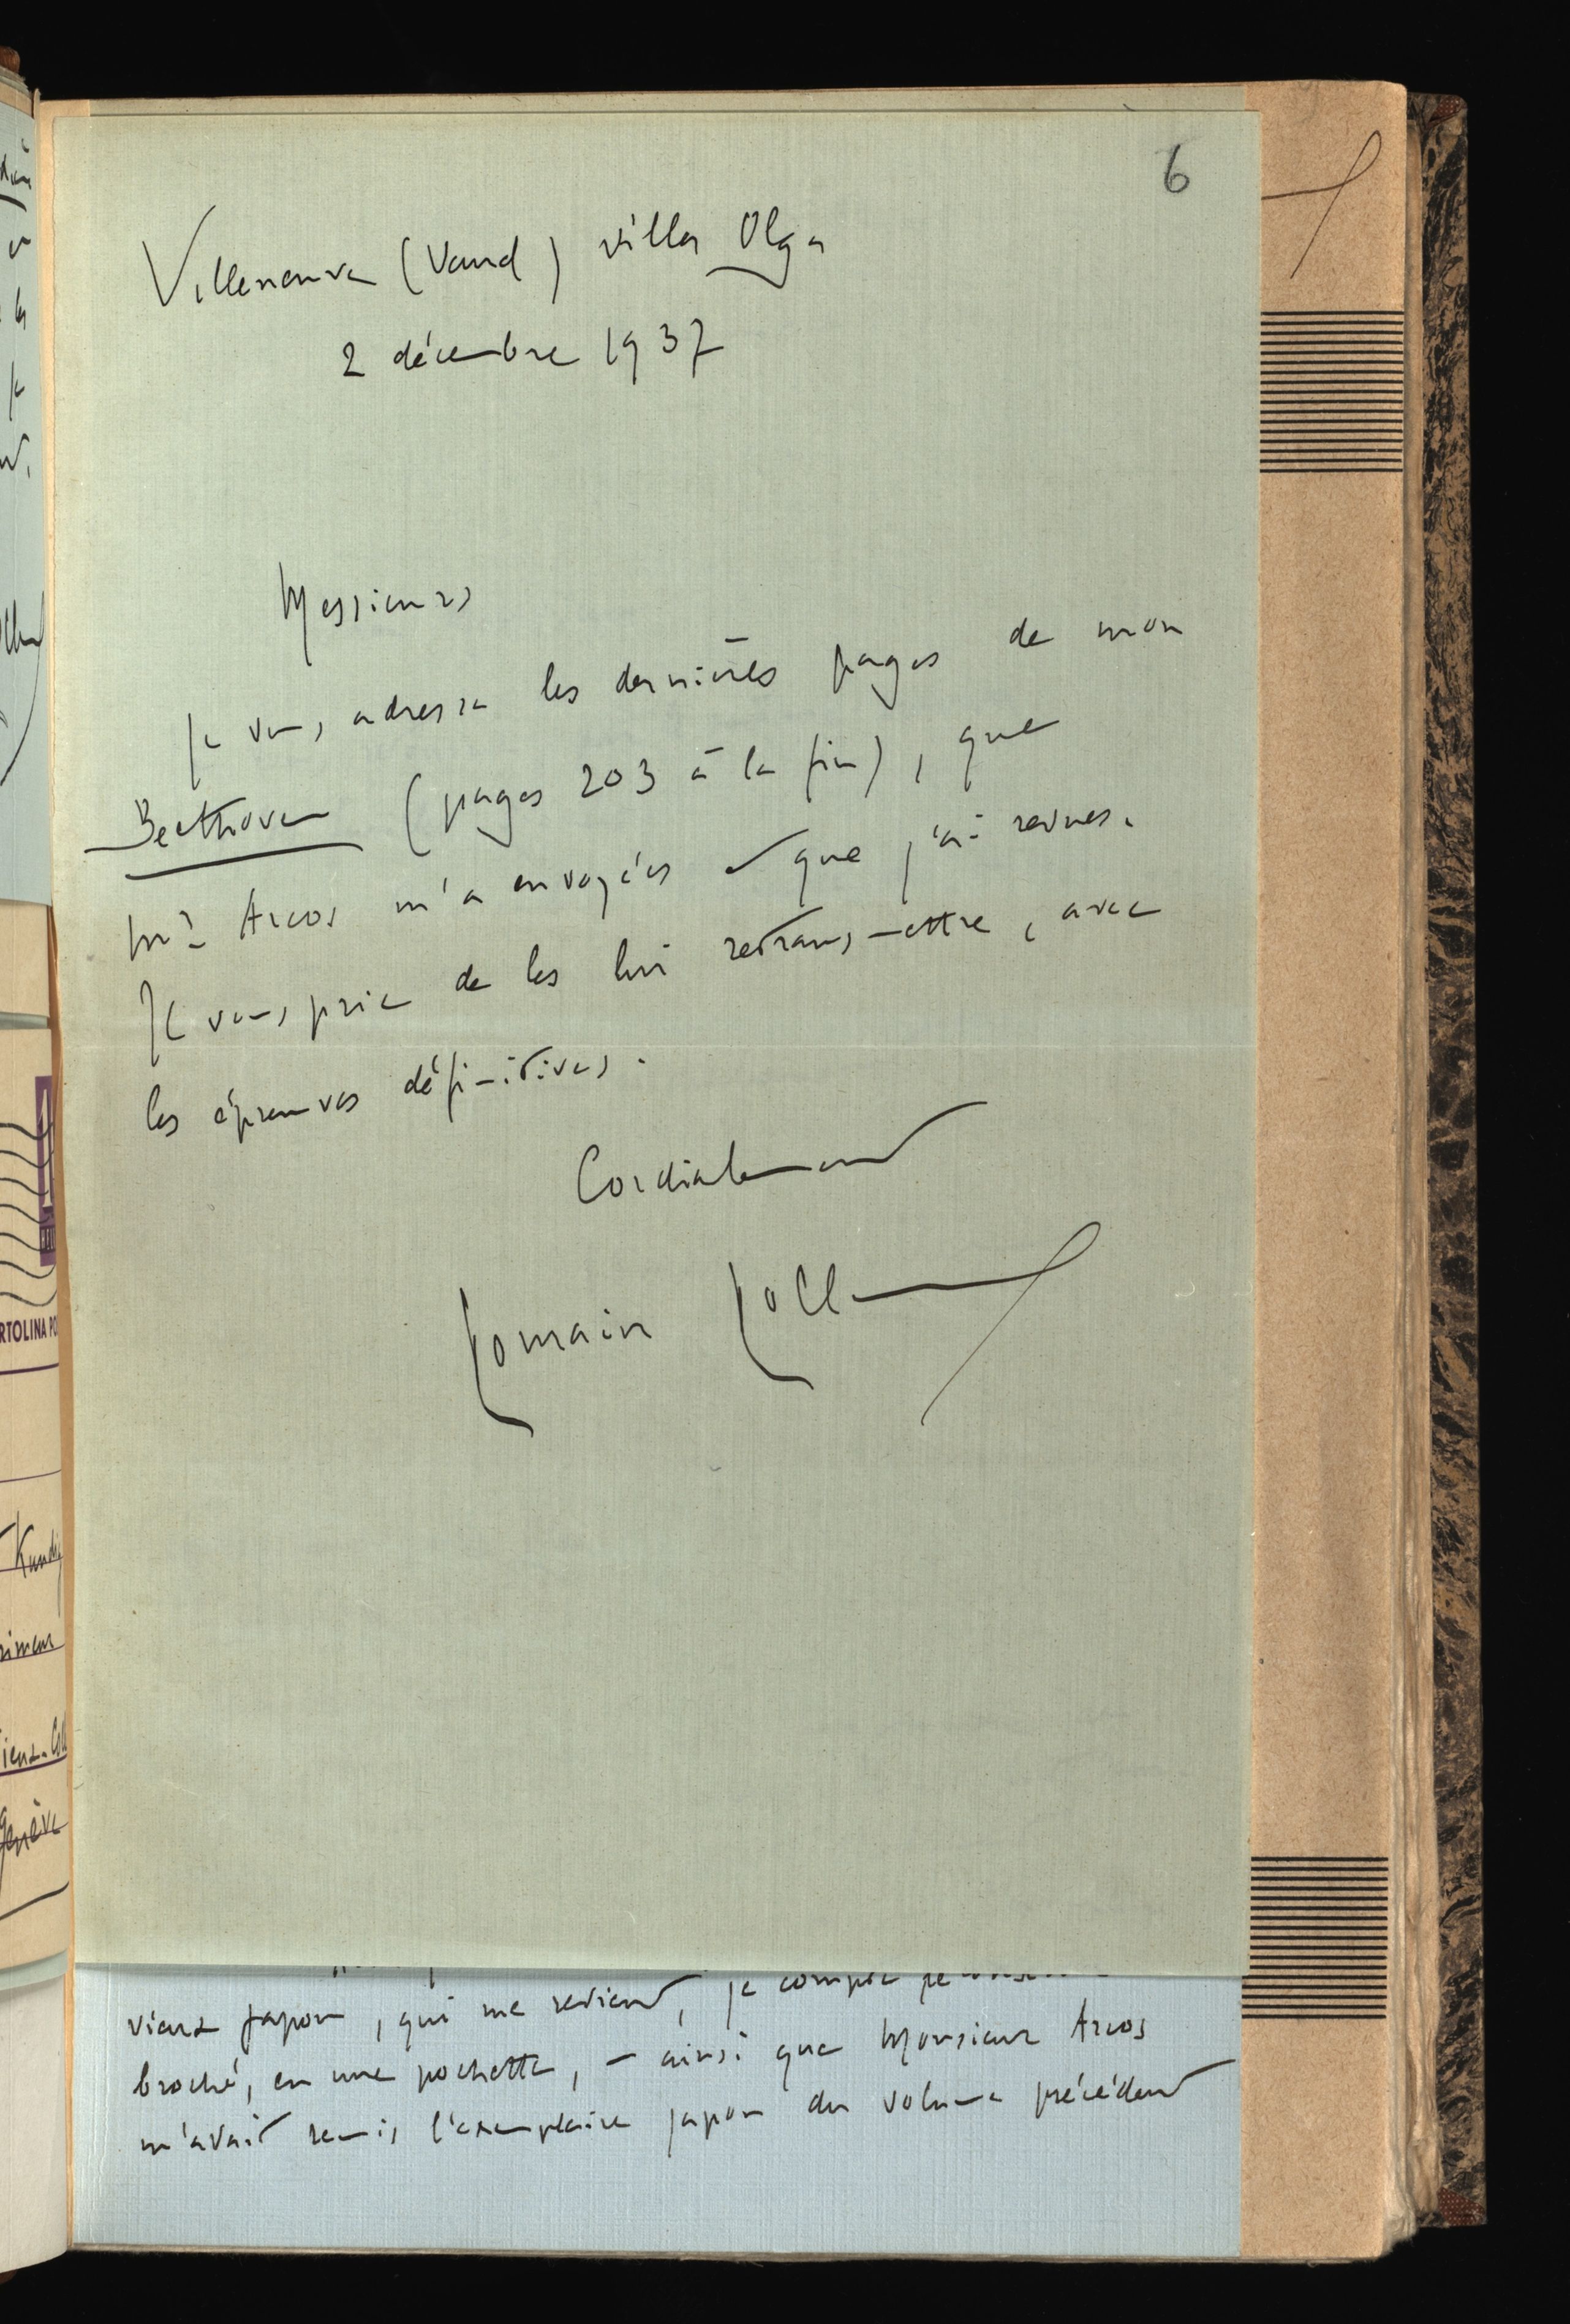 6
Villeneuve (Vaud) villa Olga
2 décembre 1937
Messieurs
Je vous adresse les dernières pages de mon
Beethoven (pages 203 à la fin), que
Mr Arcos m'a envoyées et que j'ai revues.
Je vous prie de les lui retransmettre, avec
les épreuves définitives.
Cordialement
Romain Rolland
vieux japon, qui me revient, je compte
broché, en une pochette, – ainsi que Monsieur Arcos
m'avait remis l'exemplaire japon du volume précédent
RTOLINA PO
Genève